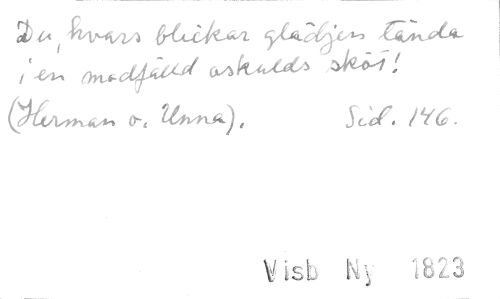 Du, hvars blickar glädjen tända
i en modfälld oskulds sköt!
(Herman o. Unna). Sid. 146.
Visb Ny 1823